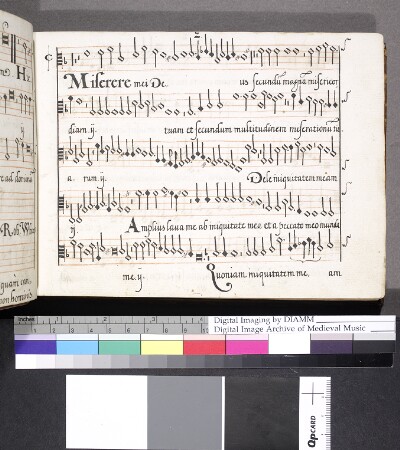 Miserere mei De us secundū magnā misericor
diam ij. tuam et secundum multitudinem miserationū tu
a rum ij. Dele iniquitatem meam
ij. Amplius lava me ab iniquitate mea et a peccato meo munda
me. ij. Quoniam iniquitatem me am
Inches 1 2 3
Digital Imaging by DIAMM
Digital Image Archive of Medieval Music
QPCARD